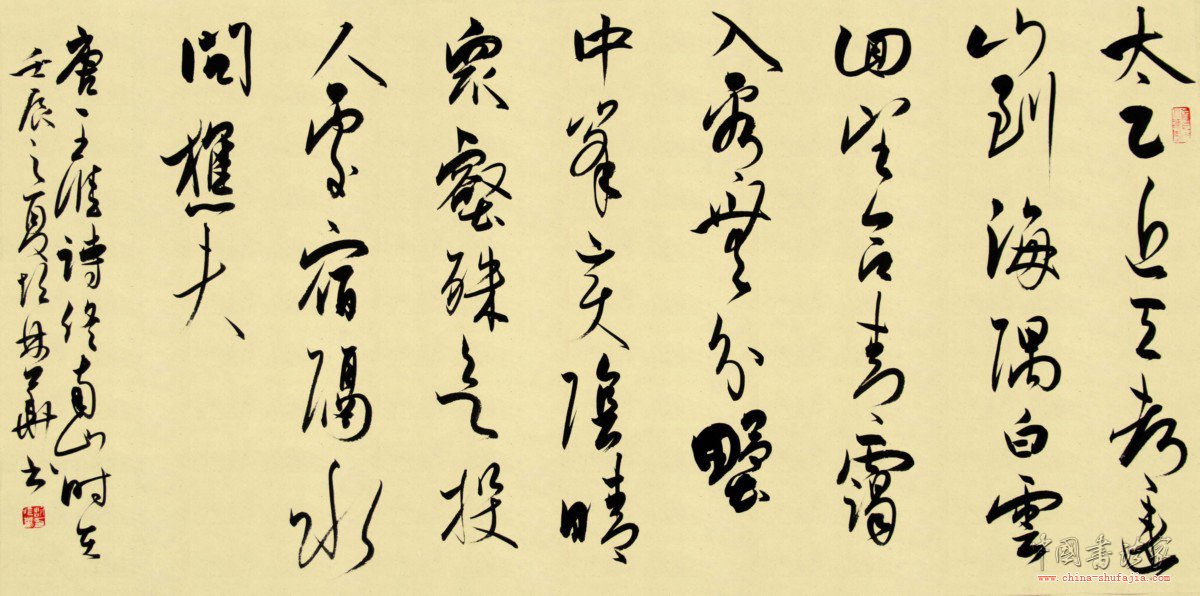 太乙近天都連
山到海隅白雲
回望合青靄
入看無分野
中峯变陰晴
衆壑殊欲投
人處宿隔水
問樵夫
唐王維詩終南山时在
壬辰之夏林華书
中國書法家
www.china-shufajia.com